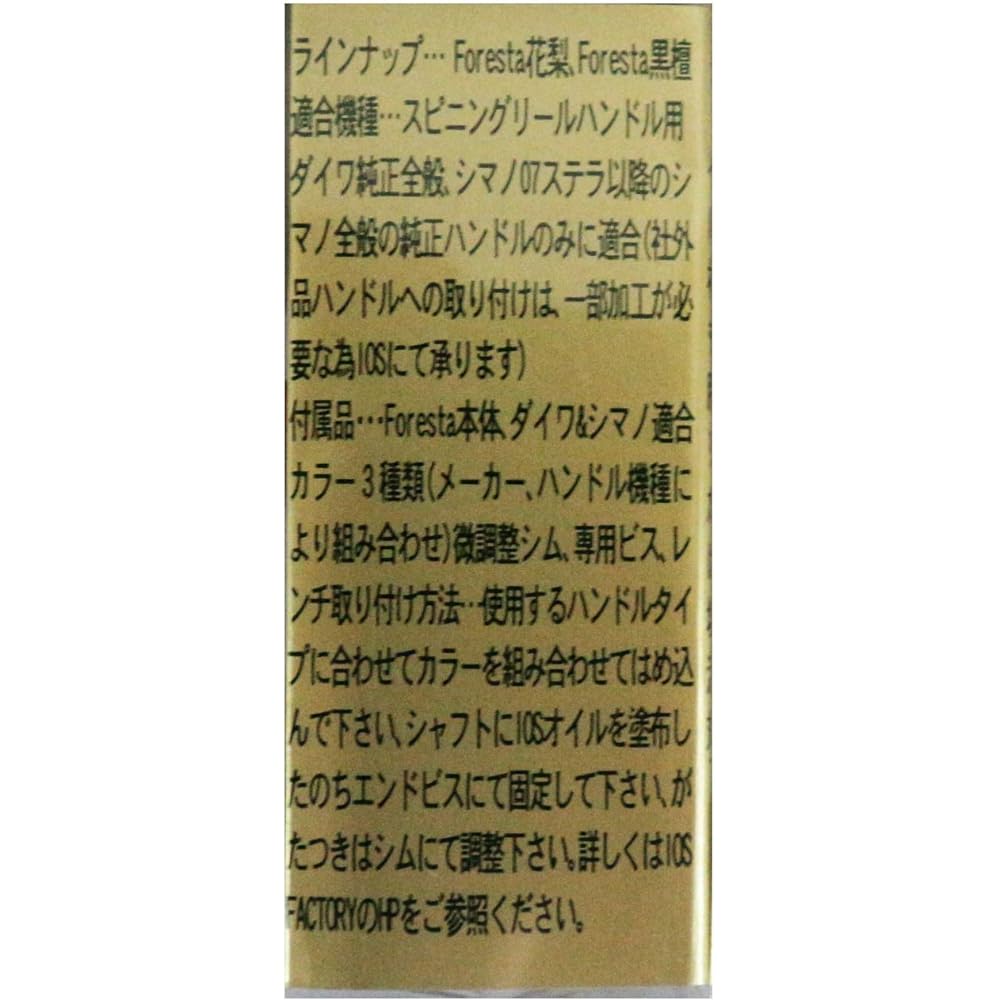 ラインナップ… Foresta花梨、Foresta黒檀
適合機種…スピニングリールハンドル用
ダイワ純正全般、シマノ07ステラ以降のシ
マノ全般の純正ハンドルのみに適合(社外
品ハンドルへの取り付けは、一部加工が必
要な為IOSにて承ります)
付属品…Foresta本体、ダイワ&シマノ適合
カラー3種類(メーカー、ハンドル機種に
より組み合わせ)微調整シム、専用ビス、レ
ンチ取り付け方法…使用するハンドルタイ
プに合わせてカラーを組み合わせてはめ込
んで下さい、シャフトにIOSオイルを塗布し
たのちエンドビスにて固定して下さい、が
たつきはシムにて調整下さい。詳しくはIOS
FACTORYのHPをご参照ください。